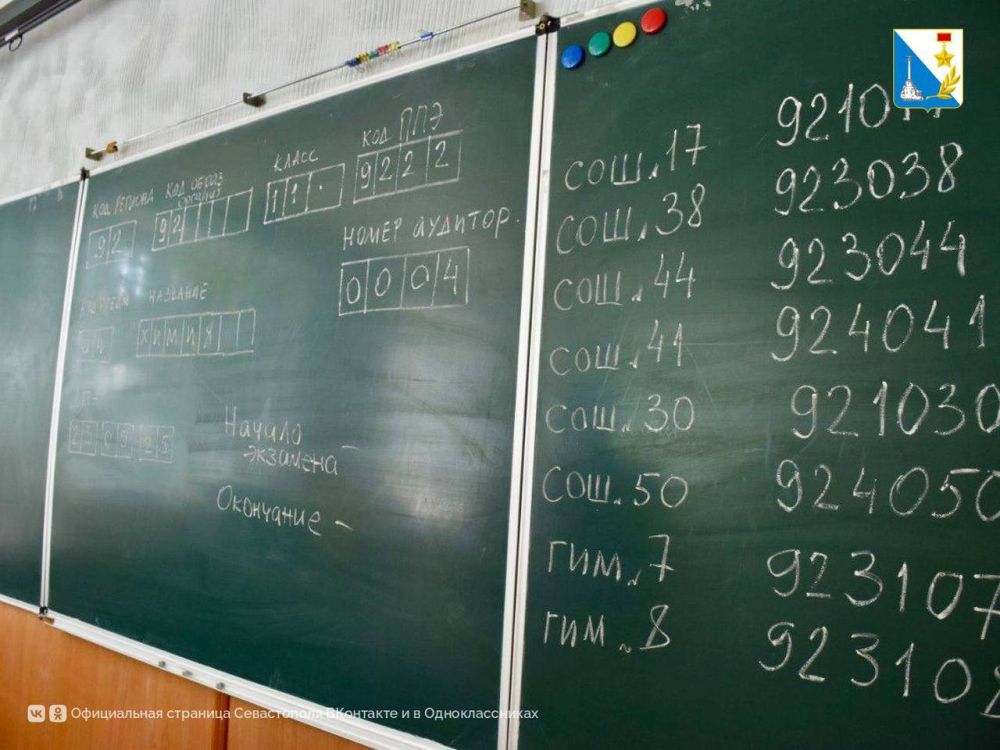 КОД РЕГИОНА КОД ОБРАЗ КЛАСС КОД ППЭ
92 92 11. 9222
НОМЕР АУДИТОР.
0004
НАЗВАНИЕ
ХИМИЯ
23 05 23
Начало
экзамена –
Окончание –
СОШ.17
СОШ.38 923038
СОШ.44 923044
СОШ.41 924041
СОШ.30 921030
СОШ.50 924050
ГИМ.7 923107
ГИМ.8 923108
Официальная страница Севастополя ВКонтакте и в Одноклассниках